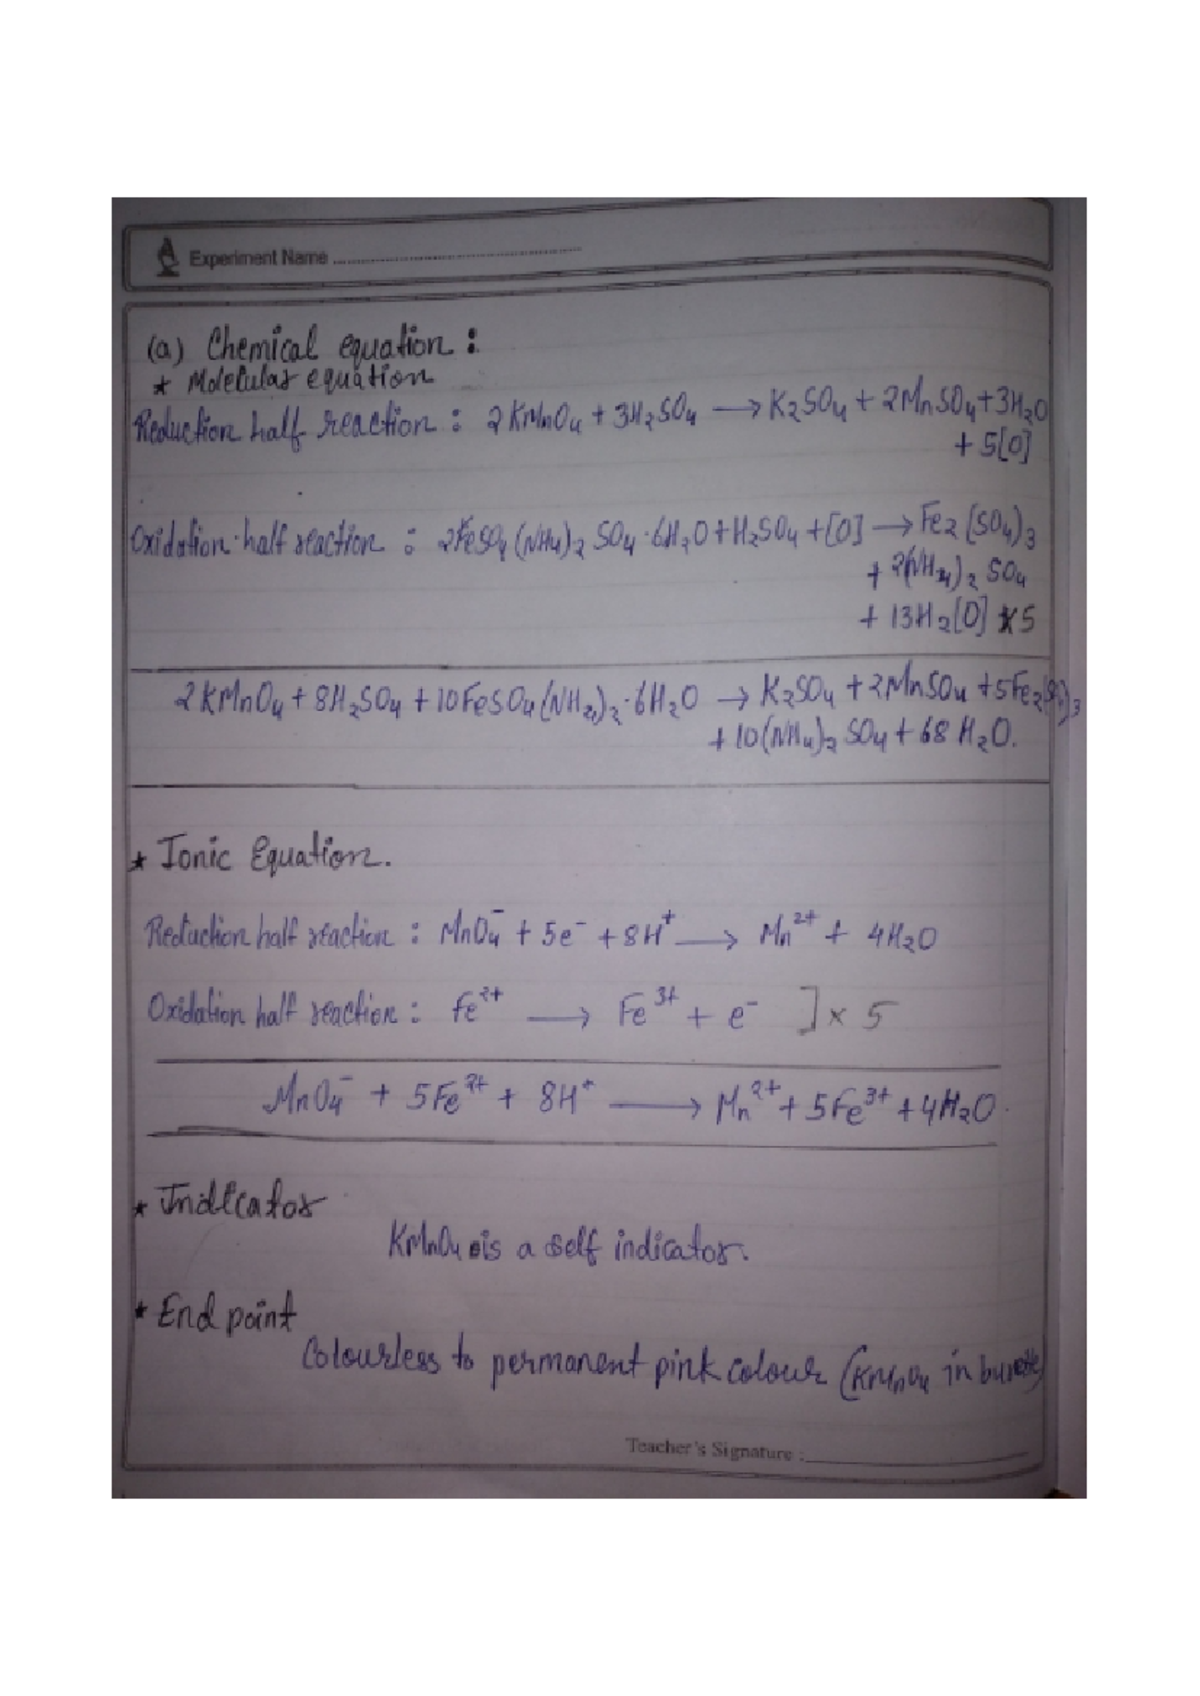 Experiment Name
(a) Chemical equation :
* Molecular equation
Reduction half reaction : 2KMnO₄ + 3H₂SO₄ → K₂SO₄ + 2MnSO₄ + 3H₂O
+ 5[O]
Oxidation half reaction : 2FeSO₄(NH₄)₂ SO₄·6H₂O + H₂SO₄ + [O] → Fe₂(SO₄)₃
+ 2(NH₄)₂ SO₄
+ 13H₂[O] x5
2KMnO₄ + 8H₂SO₄ + 10FeSO₄(NH₄)₂·6H₂O → K₂SO₄ + 2MnSO₄ + 5Fe₂(SO₄)₃
+ 10(NH₄)₂ SO₄ + 68 H₂O.
* Ionic Equation.
Reduction half reaction : MnO₄⁻ + 5e⁻ + 8H⁺ → Mn²⁺ + 4H₂O
Oxidation half reaction : Fe²⁺ → Fe³⁺ + e⁻ ] x 5
MnO₄⁻ + 5Fe²⁺ + 8H⁺ → Mn²⁺ + 5Fe³⁺ + 4H₂O.
* Indicator
KMnO₄ is a self indicator.
* End point
Colourless to permanent pink colour (KMnO₄ in burette)
Teacher's Signature :